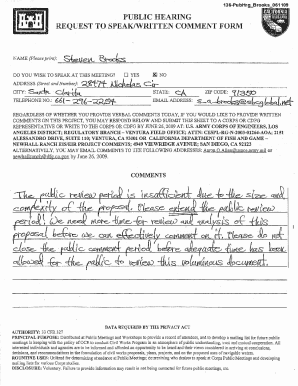 138-PubHrg_Brooks_061109
PUBLIC HEARING
REQUEST TO SPEAK/WRITTEN COMMENT FORM
CALIFORNIA
NAME (Please print): Steven Brooks
DO YOU WISH TO SPEAK AT THIS MEETING? YES NO
ADDRESS (Street and Number): 28474 Nicholas Cir
CITY: Santa Clarita STATE: CA ZIP CODE: 91350
TELEPHONE NO.: 661-296-2254 EMAIL ADDRESS: s-a.brooks@sbcglobal.net
REGARDLESS OF WHETHER YOU PROVIDE VERBAL COMMENTS TODAY, IF YOU WOULD LIKE TO PROVIDE WRITTEN
COMMENTS ON THIS PROJECT, YOU MAY RESPOND BELOW AND SUBMIT THIS SHEET TO A CORPS OR CDFG
REPRESENTATIVE OR WRITE TO THE CORPS OR CDFG BY JUNE 26, 2009 AT: U.S. ARMY CORPS OF ENGINEERS, LOS
ANGELES DISTRICT, REGULATORY BRANCH - VENTURA FIELD OFFICE; ATTN: CESPL-RG-N-2003-01264-AOA; 2151
ALESSANDRO DRIVE, SUITE 110; VENTURA, CA 93001 OR CALIFORNIA DEPARTMENT OF FISH AND GAME -
NEWHALL RANCH EIS/EIR PROJECT COMMENTS; 4949 VIEWRIDGE AVENUE; SAN DIEGO, CA 92123
ALTERNATIVELY, YOU MAY EMAIL COMMENTS TO THE FOLLOWING ADDRESSES:
by June 26, 2009.
COMMENTS
The public review period is insufficient due to the size and
complexity of the proposal. Please extend the public review
period. We need more time for review and analysis of this
proposal before we can effectively comment on it. Please do not
close the public comment period before adequate time has been
allowed for the public to review this voluminous document.
DATA REQUIRED BY THE PRIVACY ACT
AUTHORITY: 33 CFR 327
PRINCIPAL PURPOSE:
ROUTINE USES:
DISCLOSURE: